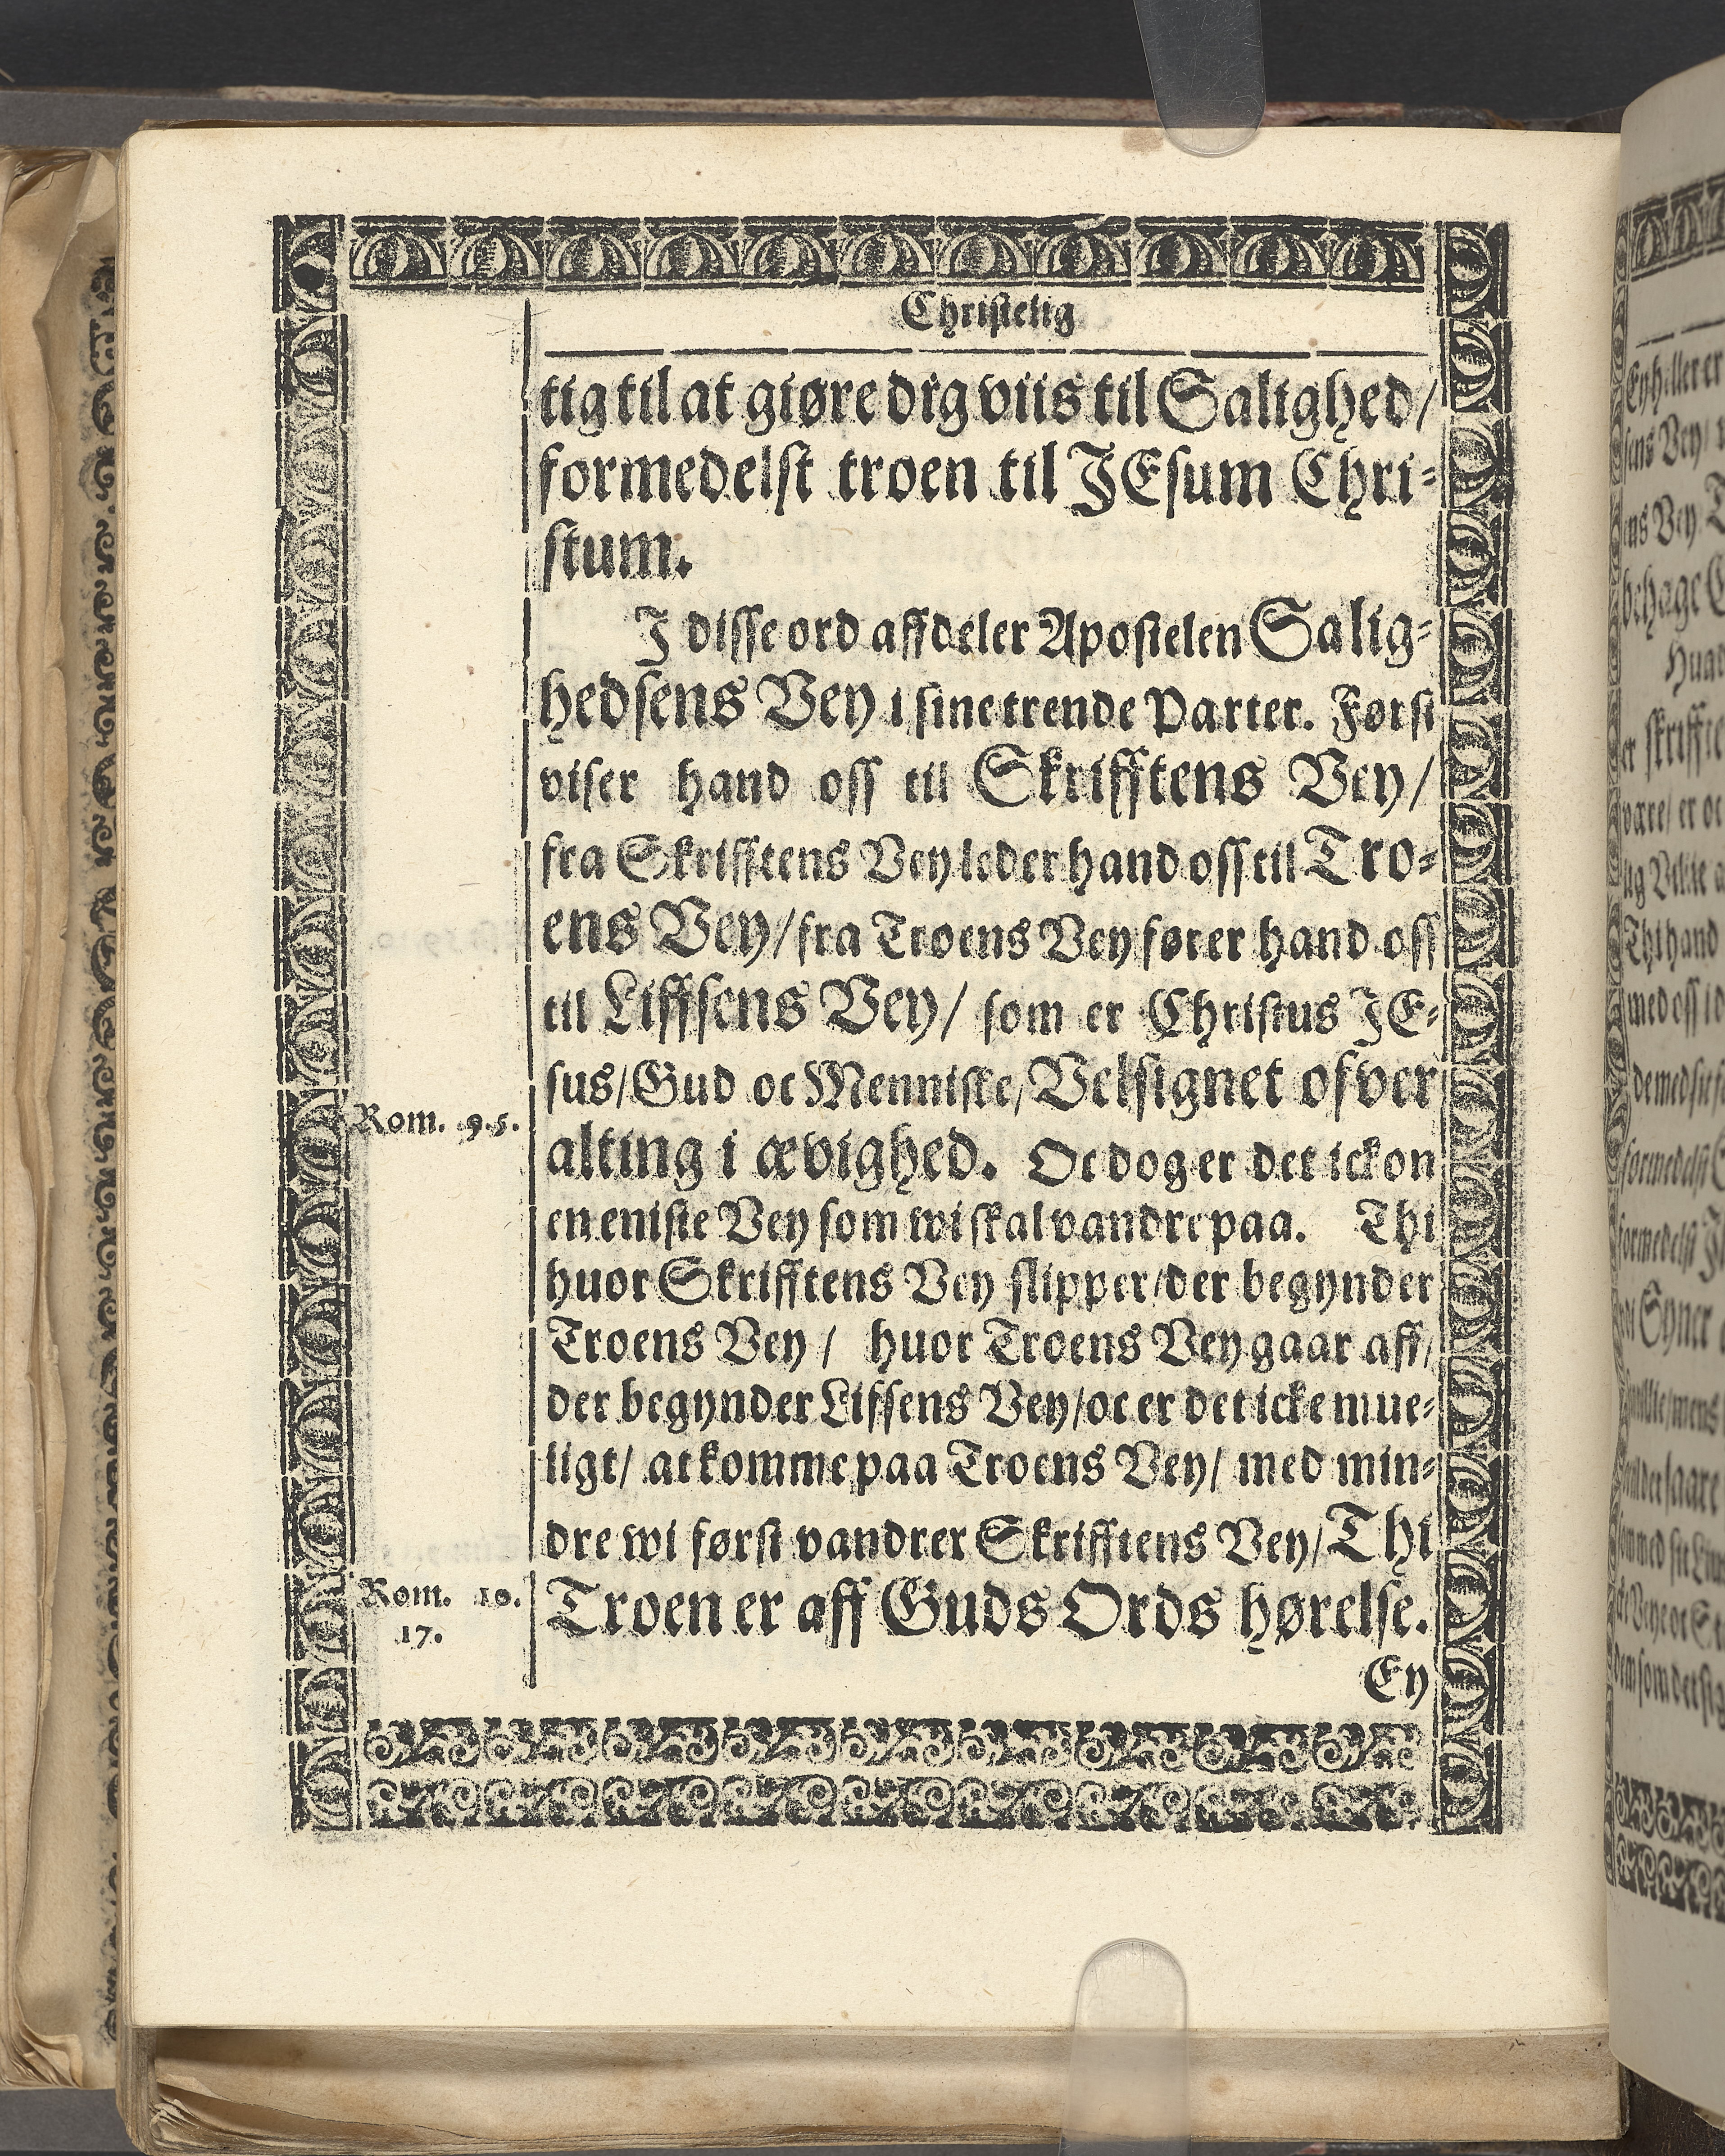 Christelig
tig til at giøre dig viis til Salighed/
formedelst troen til JEsum Chri-
stum.
J disse ord affdeler Apostelen Salig-
hedsens Vey i sine trende Parter. Først
viser hand oss til Skrifftens Vey/
fra Skrifftens Vey leder hand oss til Tro-
ens Vey/ fra Troens Vey fører hand oss
til Liffsens Vey/ som er Christus JE-
sus/ Gud oc Menniske/ Velsignet ofver
Rom. 9.5.
alting i ævighed. Oc dog er det ickon
en eniste Vey som wi skal vandre paa. Thi
huor Skrifftens Vey slipper/ der begynder
Troens Vey/ huor Troens Vey gaar aff/
der begynder Lifsens Vey/ oc er det icke mue-
ligt/ at komme paa Troens Vey/ med min-
dre wi først vandrer Skrifftens Vey/ Thi
Rom. 10.
17.
Troen er aff Guds Ords hørelse.
Ey